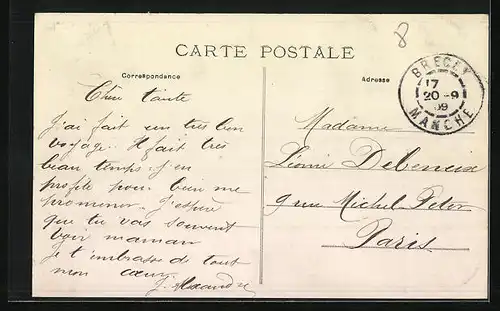 8
CARTE POSTALE
Correspondance
Adresse
BRECEY
17
20-9
09
MANCHE
Chère tante
J'ai fait un très bon
voyage. Il fait très
beau temps. J'en
profite pour bien me
promener. J'espère
que tu vas souvent
voir maman
je t'embrasse de tout
mon cœur.
Madame
Léonie
9 rue Michel
Paris